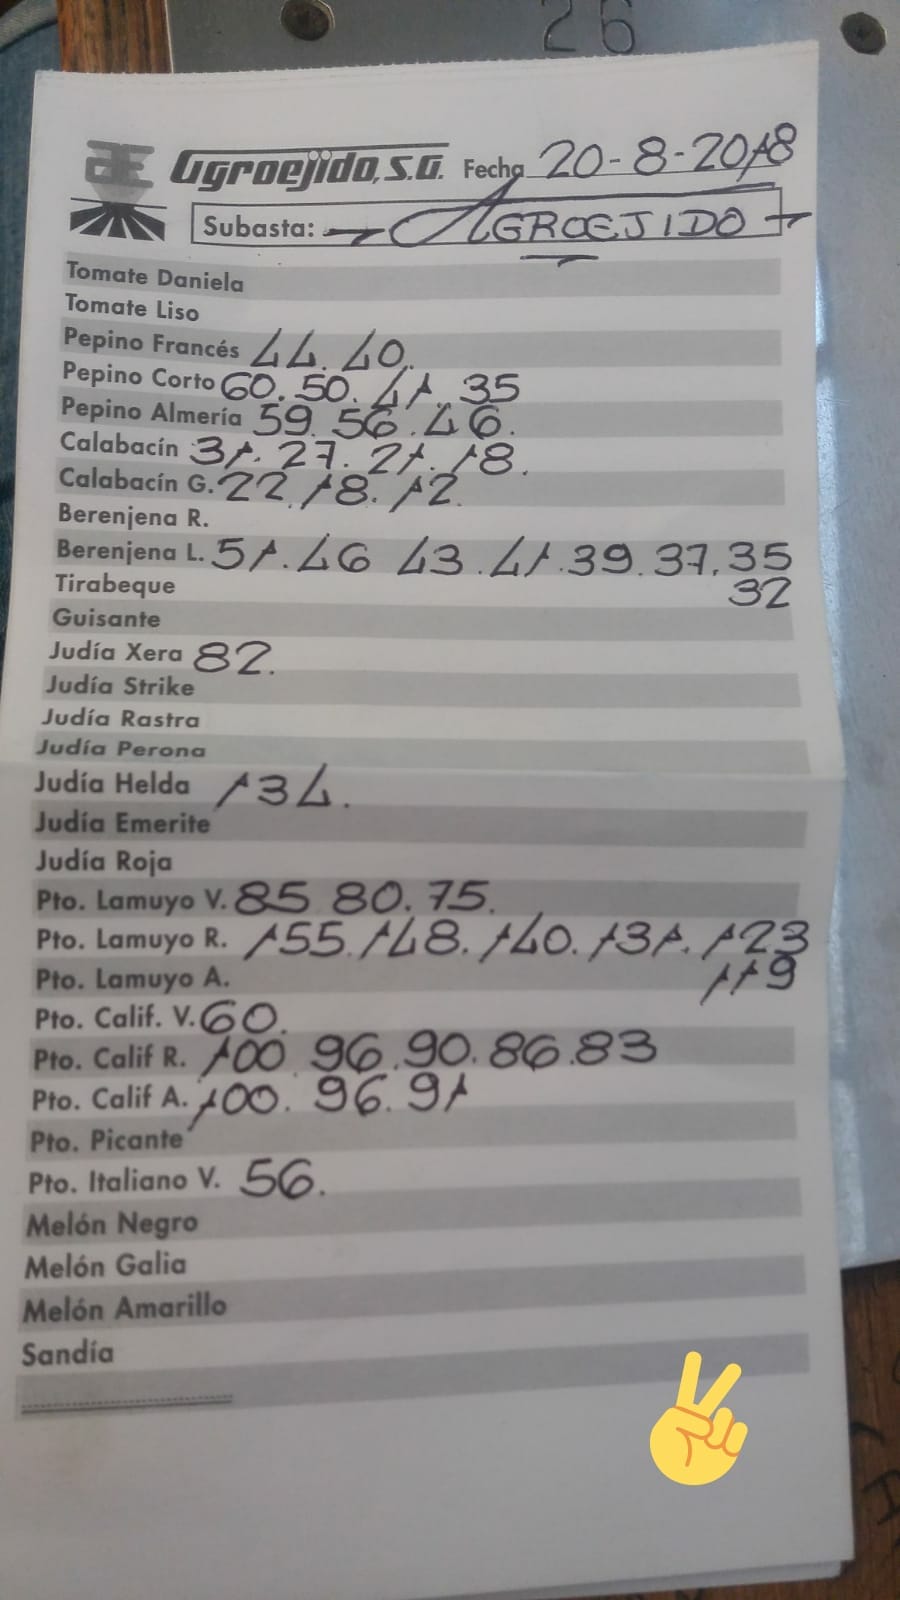 26
Agroejido, S.A. Fecha 20-8-2018
Subasta: AGROEJIDO
Tomate Daniela
Tomate Liso
Pepino Francés 44. 40.
Pepino Corto 60. 50. 41. 35
Pepino Almería 59. 56. 46.
Calabacín 31. 27. 21. 18.
Calabacín G. 22. 18. 12.
Berenjena R.
Berenjena L. 51. 46 43. 41. 39. 37. 35
Tirabeque 32
Guisante
Judía Xera 82.
Judía Strike
Judía Rastra
Judía Perona
Judía Helda 134.
Judía Emerite
Judía Roja
Pto. Lamuyo V. 85 80. 75.
Pto. Lamuyo R. 155. 148. 140. 131. 123
Pto. Lamuyo A. 119
Pto. Calif. V. 60.
Pto. Calif R. 100 96. 90. 86. 83
Pto. Calif A. 100. 96. 91
Pto. Picante
Pto. Italiano V. 56.
Melón Negro
Melón Galia
Melón Amarillo
Sandía